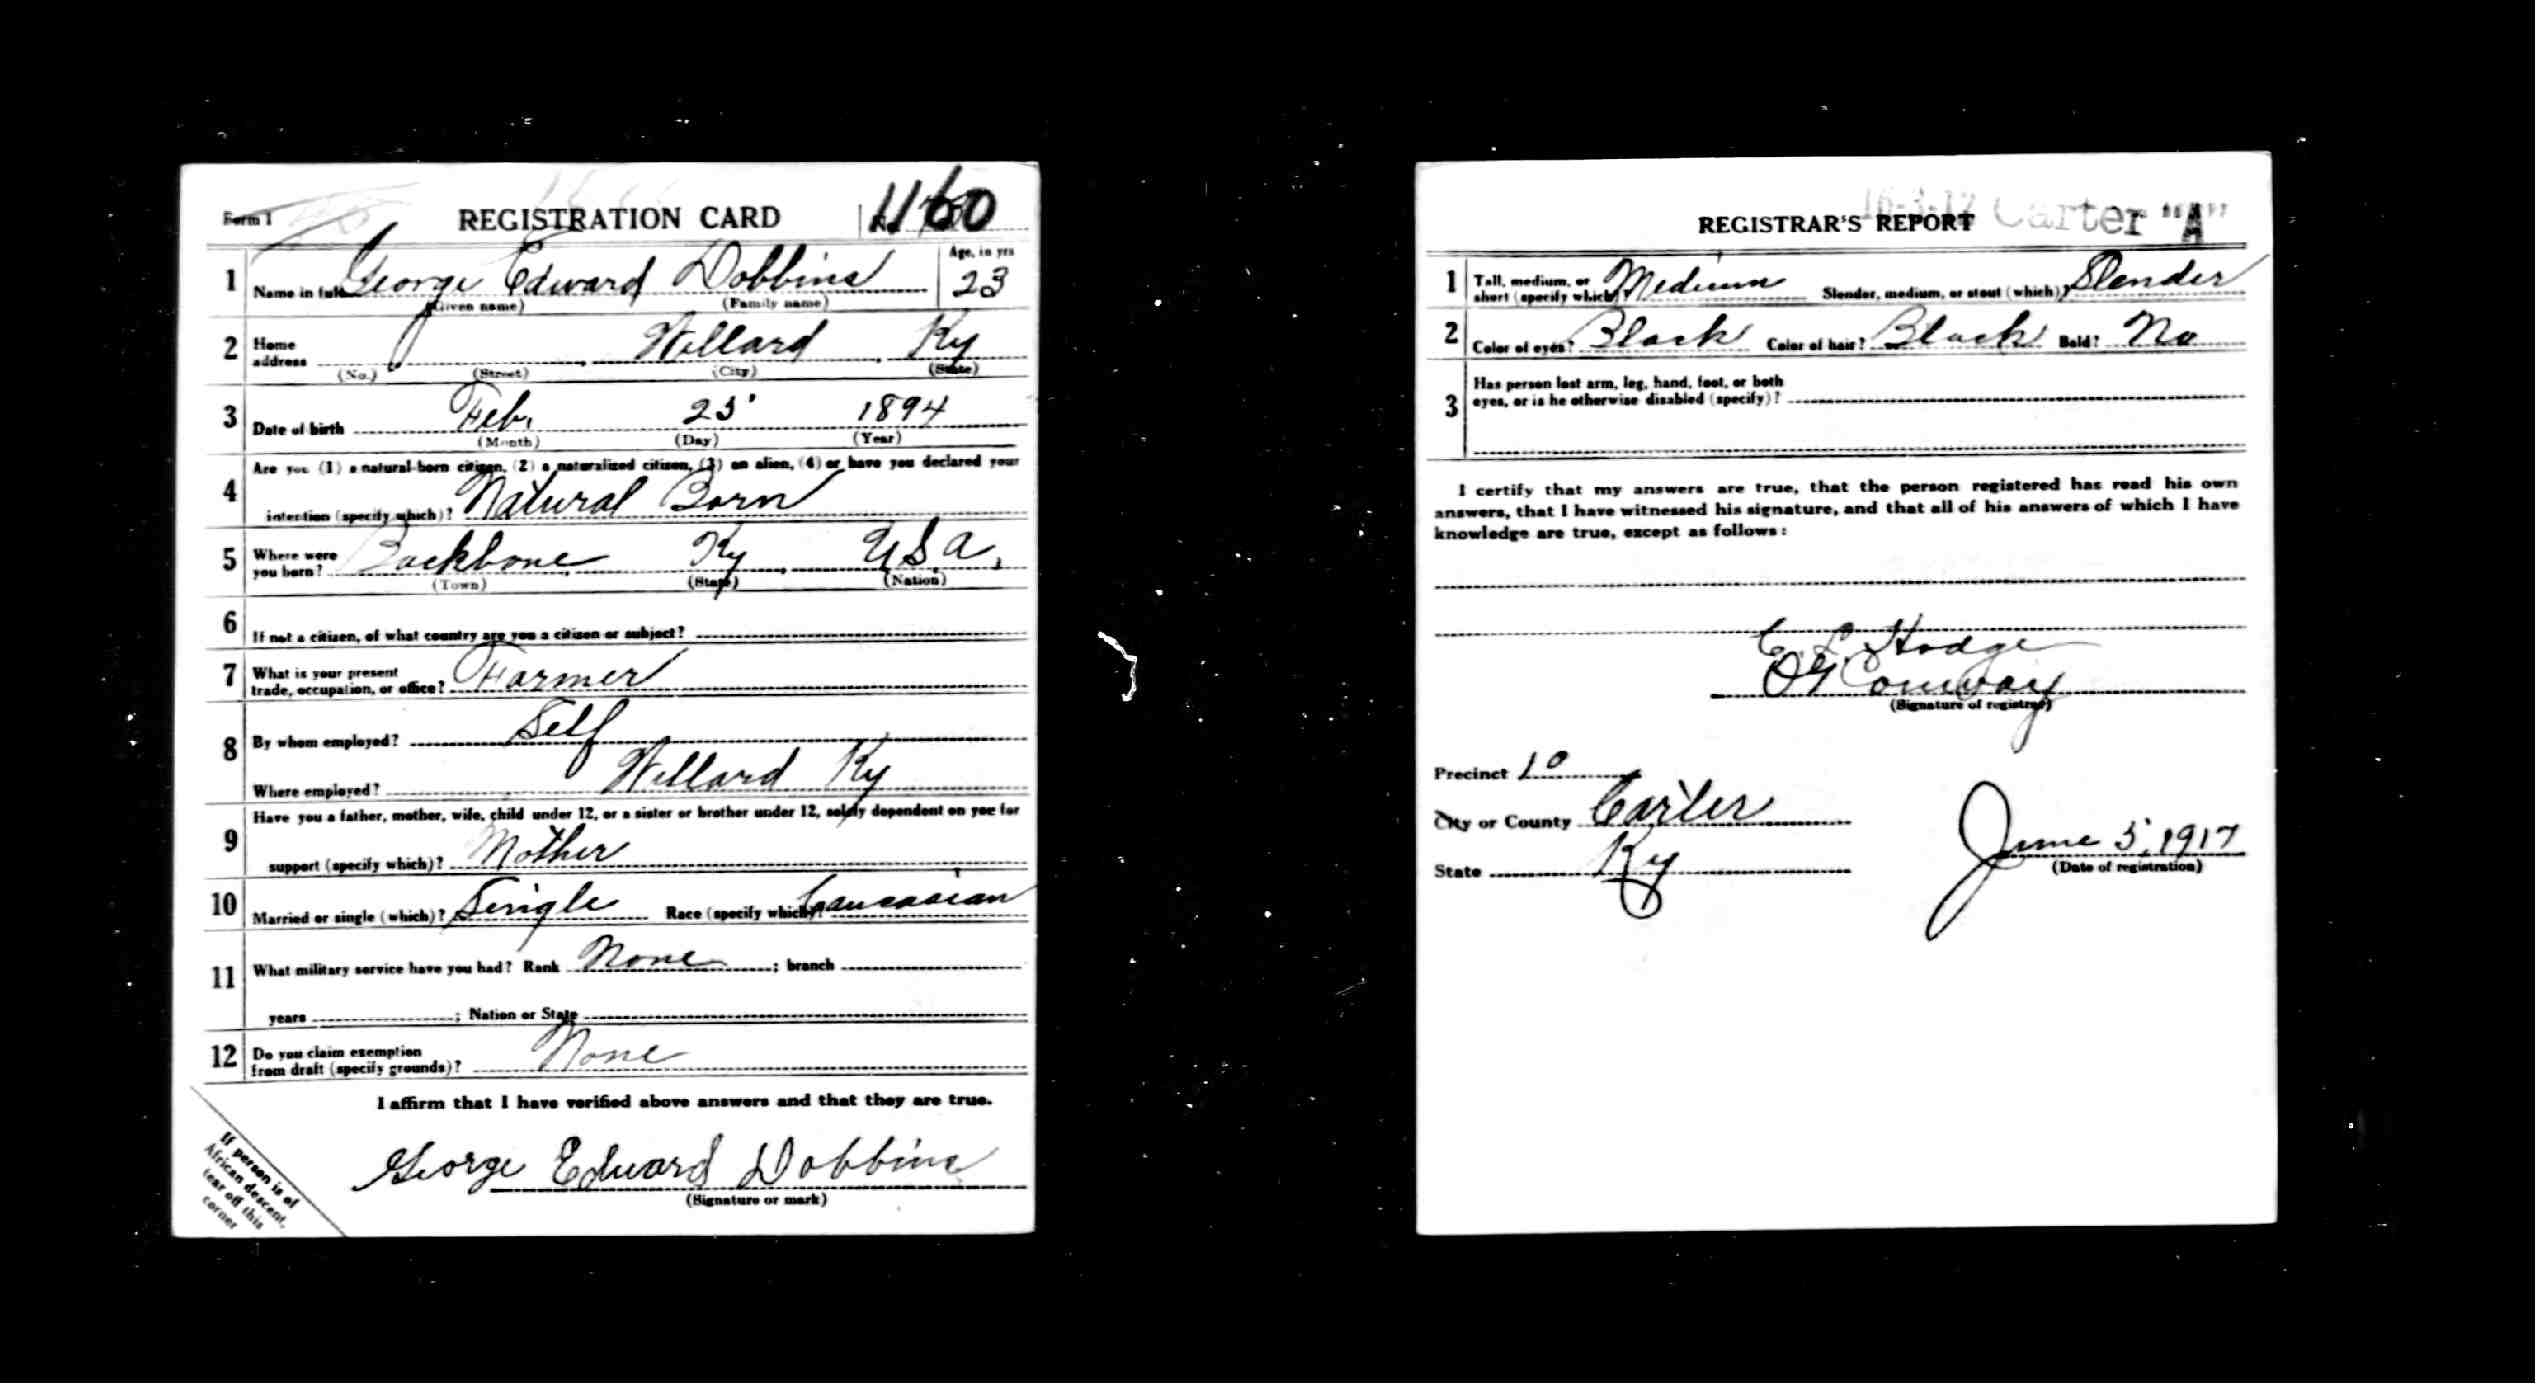 Form 1 REGISTRATION CARD No. 1160
1 Name in full George Edward Dobbins Age, in yrs 23
(Given name) (Family name)
2 Home address Willard Ky
(No.) (Street) (City) (State)
3 Date of birth Feb. 25 1894
(Month) (Day) (Year)
Are you (1) a natural-born citizen, (2) a naturalized citizen, (3) an alien, (4) or have you declared your
4 intention (specify which)? Natural Born
5 Where were you born? Backbone Ky U.S.A.
(Town) (State) (Nation)
6 If not a citizen, of what country are you a citizen or subject?
7 What is your present trade, occupation, or office? Farmer
8 By whom employed? Self
Where employed? Willard Ky
Have you a father, mother, wife, child under 12, or a sister or brother under 12, solely dependent on you for
9 support (specify which)? Mother
10 Married or single (which)? Single Race (specify which)? Caucasian
11 What military service have you had? Rank None ; branch
years ; Nation or State
12 Do you claim exemption from draft (specify grounds)? None
I affirm that I have verified above answers and that they are true.
George Edward Dobbins
(Signature or mark)
If person is of
African descent,
tear off this
corner
Carter "A"
REGISTRAR'S REPORT
1 Tall, medium, or short (specify which)? Medium Slender, medium, or stout (which)? Slender
2 Color of eyes? Black Color of hair? Black Bald? No
3 Has person lost arm, leg, hand, foot, or both
eyes, or is he otherwise disabled (specify)?
I certify that my answers are true, that the person registered has read his own
answers, that I have witnessed his signature, and that all of his answers of which I have
knowledge are true, except as follows:
E L Hodge
Conway
(Signature of registrar)
Precinct 10
City or County Carter
State Ky
June 5, 1917
(Date of registration)